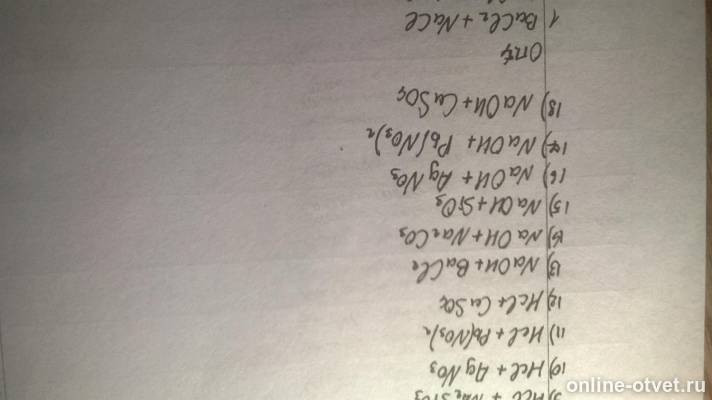 9) HCl + Na2SiO3
10) HCl + AgNO3
11) HCl + Pb(NO3)2
12) HCl + CuSO4
13) NaOH + BaCl2
14) NaOH + Na2CO3
15) NaOH + SiO3
16) NaOH + AgNO3
17) NaOH + Pb(NO3)2
18) NaOH + CuSO4
1 BaCl2 + NaCl
online-otvet.ru